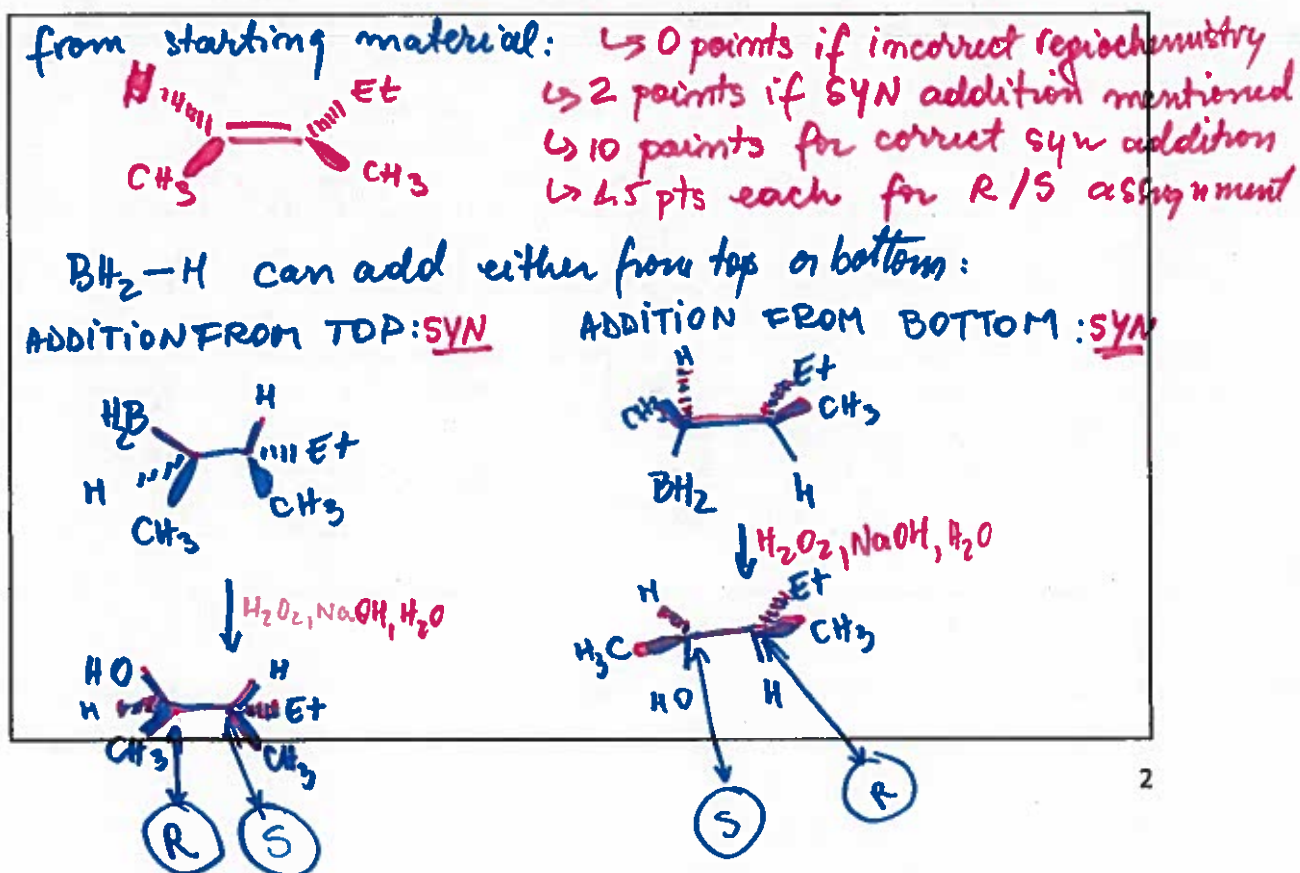 from starting material:
↳ 0 points if incorrect regiochemistry
H Et
↳ 2 points if SYN addition mentioned
↳ 10 points for correct syn addition
CH3 CH3
↳ 2.5 pts each for R/S assignment
BH2-H can add either from top or bottom:
ADDITION FROM TOP: SYN
H2B H
H Et
CH3 CH3
H2O2, NaOH, H2O
HO H
H Et
CH3 CH3
R S
ADDITION FROM BOTTOM: SYN
H Et
CH3 CH3
BH2 H
H2O2, NaOH, H2O
H Et
H3C CH3
HO H
S R
2